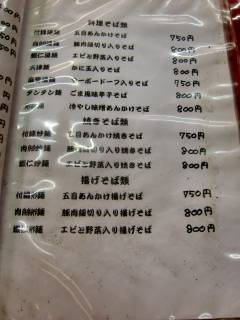 料理そば類
什錦湯麺 五目あんかけそば 750円
肉絲湯麺 豚肉細切り入りそば 800円
蝦仁湯麺 エビと野菜入りそば 800円
天津麺 かに玉入りそば 800円
マーボードーフ入りそば 800円
タンタン麺 ごま風味辛子そば 800円
冷やし味噌あんかけそば 800円
焼きそば類
什錦炒麺 五目あんかけ焼きそば 750円
肉絲炒麺 豚肉細切り入り焼きそば 800円
蝦仁炒麺 エビと野菜入り焼きそば 800円
揚げそば類
什錦 五目あんかけ揚げそば 750円
肉絲 豚肉細切り入り揚げそば 800円
蝦仁 エビと野菜入り揚げそば 800円